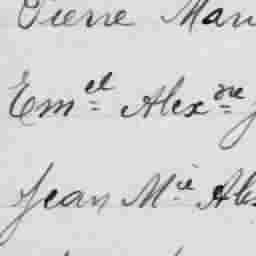 Pierre Mari
Em.el Alex.dre J
Jean M.ie Alex